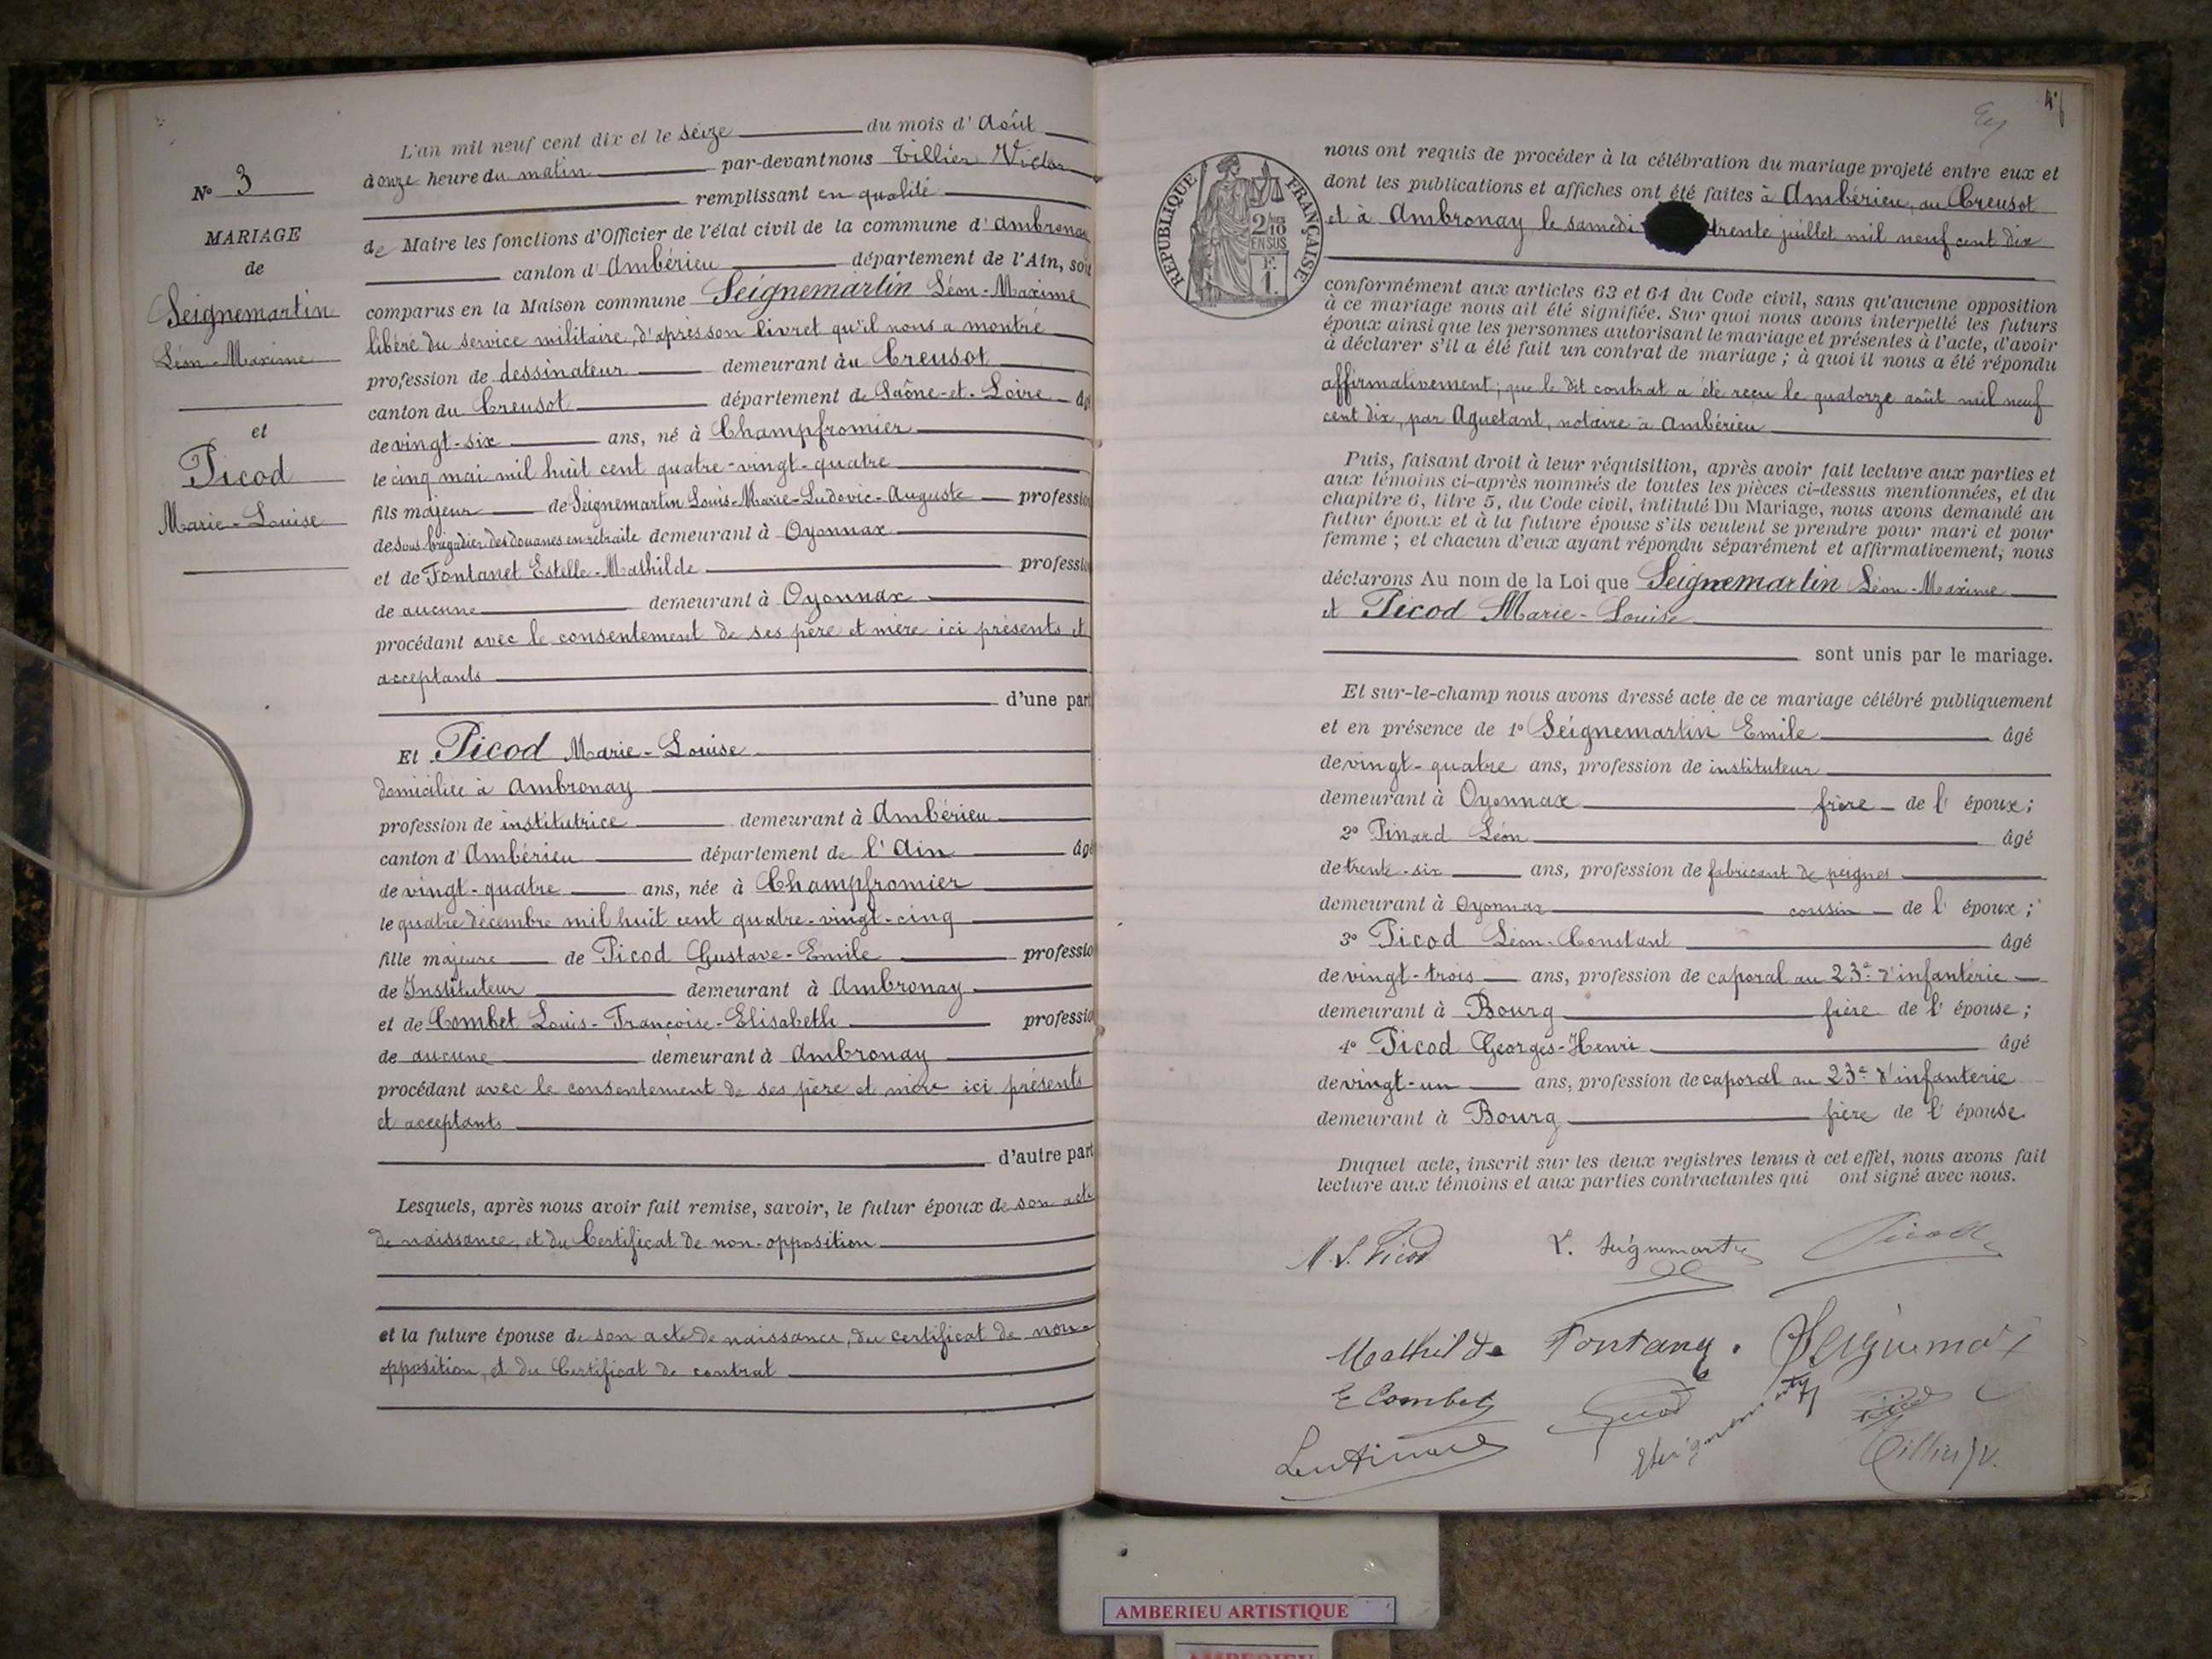 L'an mil neuf cent dix et le seize du mois d'Août
à onze heure du matin par-devant nous Tillier Victor
remplissant en qualité
de Maire les fonctions d'Officier de l'état civil de la commune d'Ambronay
canton d'Ambérieu département de l'Ain, sont
comparus en la Maison commune Seignemartin Léon-Maxime
libéré du service militaire, d'après son livret qu'il nous a montré
profession de dessinateur demeurant au Creusot
canton du Creusot département de Saône-et-Loire âgé
de vingt-six ans, né à Champfromier
le cinq mai mil huit cent quatre-vingt-quatre
fils majeur de Seignemartin Louis-Marie-Ludovic-Auguste profession
de sous brigadier des douanes en retraite demeurant à Oyonnax
et de Fontanet Estelle-Mathilde profession
de aucune demeurant à Oyonnax
procédant avec le consentement de ses père et mère ici présents et
acceptants
d'une part
Et Picod Marie-Louise
domiciliée à Ambronay
profession de institutrice demeurant à Ambérieu
canton d'Ambérieu département de l'Ain âgé
de vingt-quatre ans, née à Champfromier
le quatre décembre mil huit cent quatre-vingt-cinq
fille majeure de Picod Gustave-Emile profession
de Instituteur demeurant à Ambronay
et de Combet Louis-Françoise-Elisabeth profession
de aucune demeurant à Ambronay
procédant avec le consentement de ses père et mère ici présents
et acceptants
d'autre part
Lesquels, après nous avoir fait remise, savoir, le futur époux de son acte
de naissance, et du Certificat de non-opposition
et la future épouse de son acte de naissance, du certificat de non-
opposition, et du Certificat de contrat
N° 3
MARIAGE
de
Seignemartin
Léon-Maxime
et
Picod
Marie-Louise
RÉPUBLIQUE FRANÇAISE
2/10
EN SUS
F.
1.
nous ont requis de procéder à la célébration du mariage projeté entre eux et
dont les publications et affiches ont été faites à Ambérieu, au Creusot
et à Ambronay le samedi trente juillet mil neuf cent dix
conformément aux articles 63 et 64 du Code civil, sans qu'aucune opposition
à ce mariage nous ait été signifiée. Sur quoi nous avons interpellé les futurs
époux ainsi que les personnes autorisant le mariage et présentes à l'acte, d'avoir
à déclarer s'il a été fait un contrat de mariage ; à quoi il nous a été répondu
affirmativement ; que le dit contrat a été reçu le quatorze août mil neuf
cent dix, par Aguetant, notaire à Ambérieu
Puis, faisant droit à leur réquisition, après avoir fait lecture aux parties et
aux témoins ci-après nommés de toutes les pièces ci-dessus mentionnées, et du
chapitre 6, titre 5, du Code civil, intitulé Du Mariage, nous avons demandé au
futur époux et à la future épouse s'ils veulent se prendre pour mari et pour
femme ; et chacun d'eux ayant répondu séparément et affirmativement, nous
déclarons Au nom de la Loi que Seignemartin Léon-Maxime
et Picod Marie-Louise
sont unis par le mariage.
Et sur-le-champ nous avons dressé acte de ce mariage célébré publiquement
et en présence de 1° Seignemartin Emile âgé
de vingt-quatre ans, profession de instituteur
demeurant à Oyonnax frère de l'époux ;
2° Pinard Léon âgé
de trente-six ans, profession de fabricant de peignes
demeurant à Oyonnax cousin de l'époux ;
3° Picod Léon-Constant âgé
de vingt-trois ans, profession de caporal au 23e d'infanterie
demeurant à Bourg frère de l'épouse ;
4° Picod Georges-Henri âgé
de vingt-un ans, profession de caporal au 23e d'infanterie
demeurant à Bourg frère de l'épouse
Duquel acte, inscrit sur les deux registres tenus à cet effet, nous avons fait
lecture aux témoins et aux parties contractantes qui ont signé avec nous.
M. L. Picod L. Seignemartin Picod
Mathilde Fontanet Seignemartin
E Combet Picod Seignemartin Picod
Tillier V.
AMBERIEU ARTISTIQUE
AMBERIEU